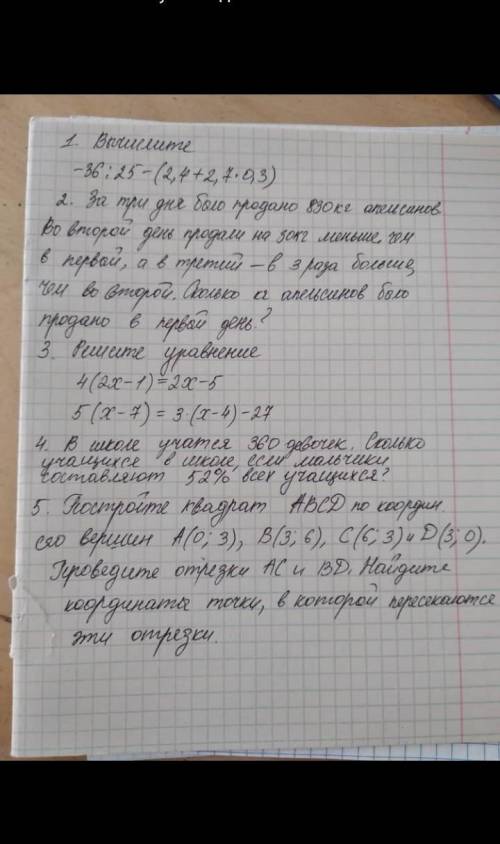 1. Вычислите
-36:25-(2,4+2,7·0,3)
2. За три дня было продано 830кг апельсинов
Во второй день продали на 30кг меньше, чем
в первой, а в третий – в 3 раза больше,
чем во второй. Сколько кг апельсинов было
продано в первой день?
3. Решите уравнение
4(2х-1)=2х-5
5(х-7) = 3·(х-4)-27
4. В школе учатся 360 девочек. Сколько
учащихся в школе, если мальчики
составляют 52% всех учащихся?
5. Постройте квадрат ABCD по координ.
его вершин A(0; 3), B(3; 6), C(6; 3) и D(3; 0).
Проведите отрезки AC и BD. Найдите
координаты точки, в которой пересекаются
эти отрезки.